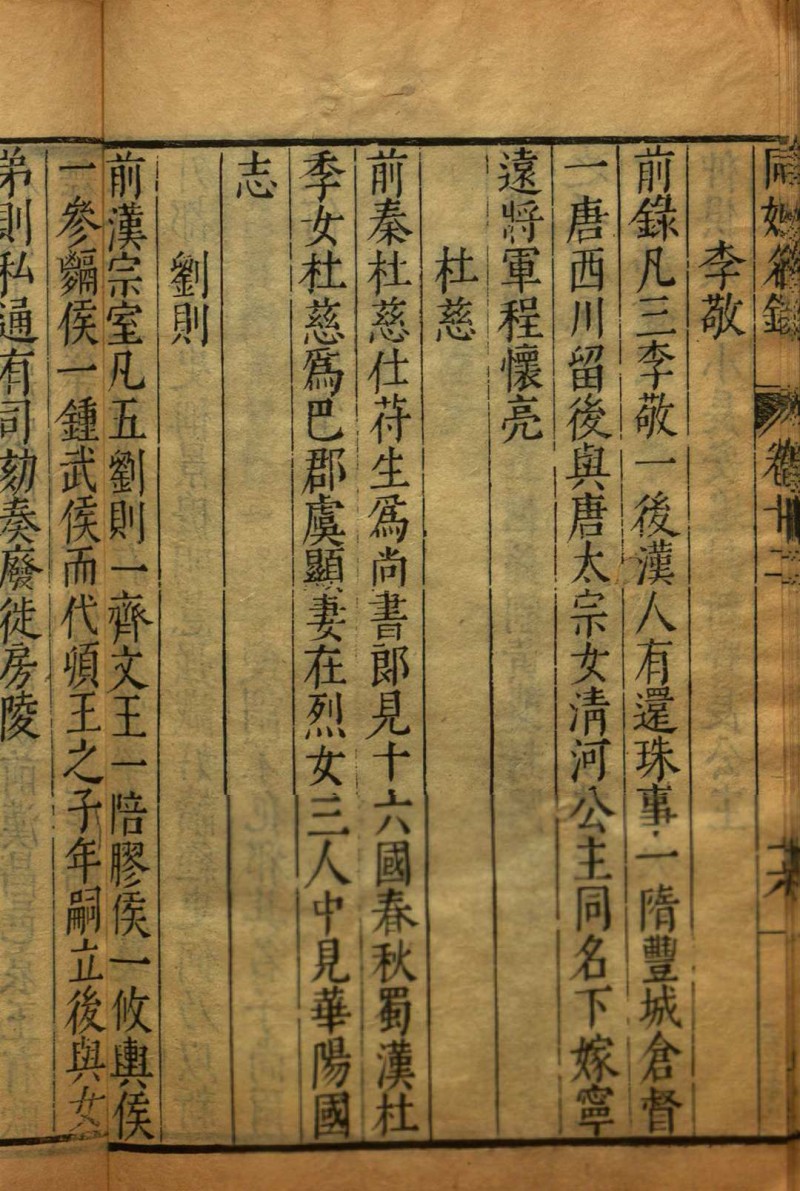 同姓名錄 卷十二
李敬
前錄凡三李敬一後漢人有還珠事一隋豐城倉督
一唐西川留後與唐太宗女清河公主同名下嫁寧
遠將軍程懷亮
杜慈
前秦杜慈仕苻生爲尚書郎見十六國春秋蜀漢杜
季女杜慈爲巴郡虞顯妻在烈女三人中見華陽國
志
劉則
前漢宗室凡五劉則一齊文王一陪膠侯一攸輿侯
一參鬷侯一鍾武侯而代頃王之子年嗣立後與女
弟則私通有司劾奏廢徙房陵